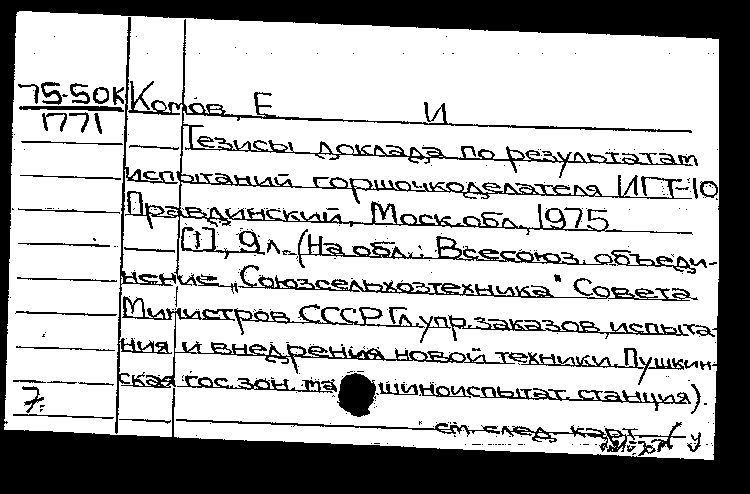 75-50К Котов, Е И
1771
Тезисы доклада по результатам
испытаний горшочкоделателя ИГТ-10
Правдинский, Моск. обл., 1975.
[1], 9 л. (На обл.: Всесоюз. объеди-
нение „Союзсельхозтехника" Совета
Министров СССР Гл. упр. заказов, испыта-
ния и внедрения новой техники. Пушкин-
ская гос. зон. ма шиноиспытат. станция).
7.
см. след. карт.